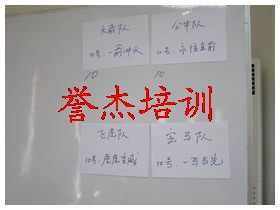 火箭队
公牛队
口号：一箭冲天
口号：勇往直前
10
10
誉杰培训
飞虎队
宝马队
口号：虎虎生威
口号：一马当先